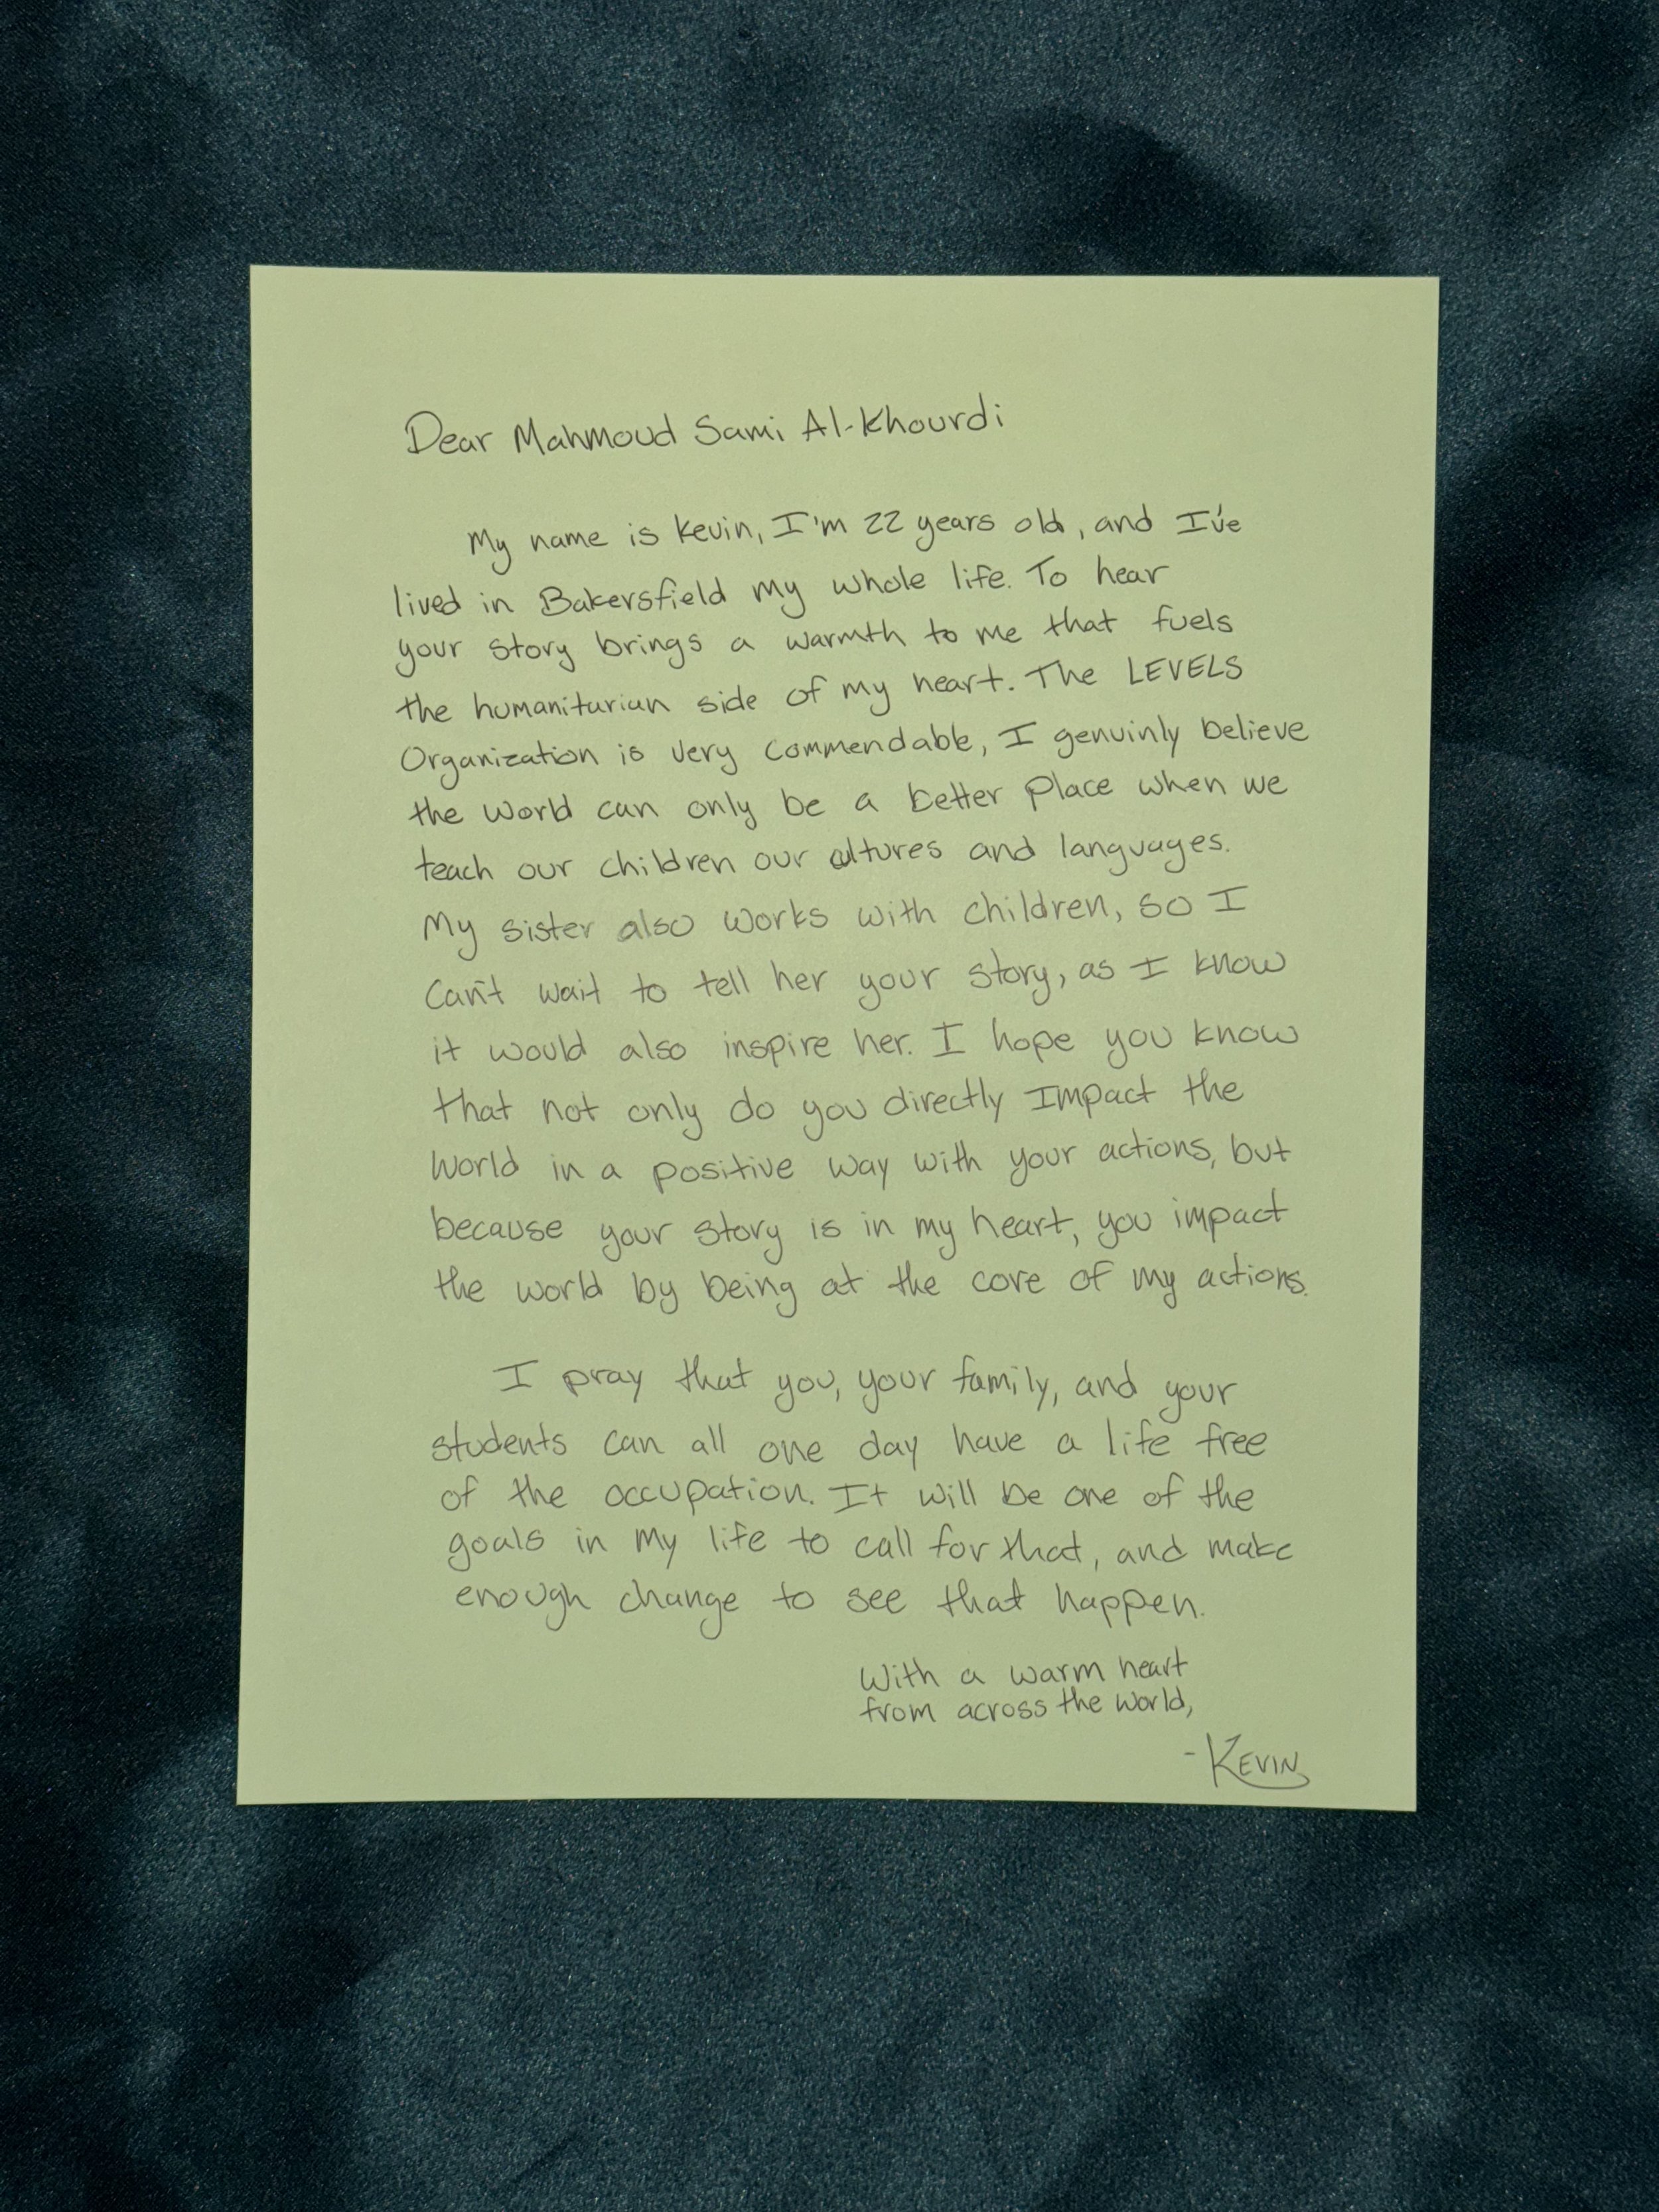 Dear Mahmoud Sami Al-Khourdi
My name is Kevin, I'm 22 years old, and I've
lived in Bakersfield my whole life. To hear
your story brings a warmth to me that fuels
the humanitarian side of my heart. The LEVELS
Organization is very commendable, I genuinly believe
the world can only be a better place when we
teach our children our cultures and languages.
My sister also works with children, so I
can't wait to tell her your story, as I know
it would also inspire her. I hope you know
that not only do you directly impact the
world in a positive way with your actions, but
because your story is in my heart, you impact
the world by being at the core of my actions.
I pray that you, your family, and your
students can all one day have a life free
of the occupation. It will be one of the
goals in my life to call for that, and make
enough change to see that happen.
With a warm heart
from across the world,
-KEVIN